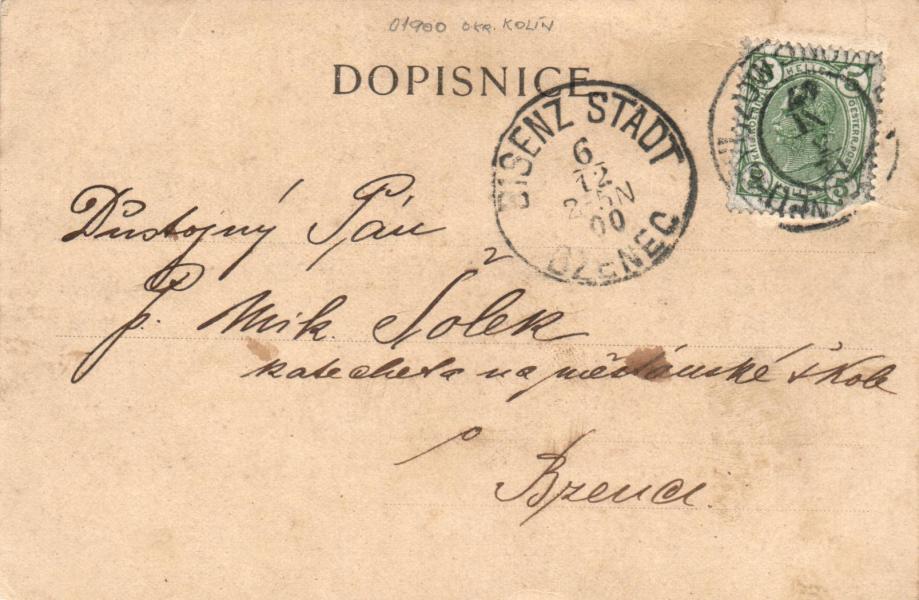 01900 OKR. KOLÍN
DOPISNICE
BISENZ STADT
6
12
2-5N
00
BZENEC
5 HELLER 5
Důstojný Pán
P. Mik. Šolek
katecheta na měšťanské škole
v
Bzenci.